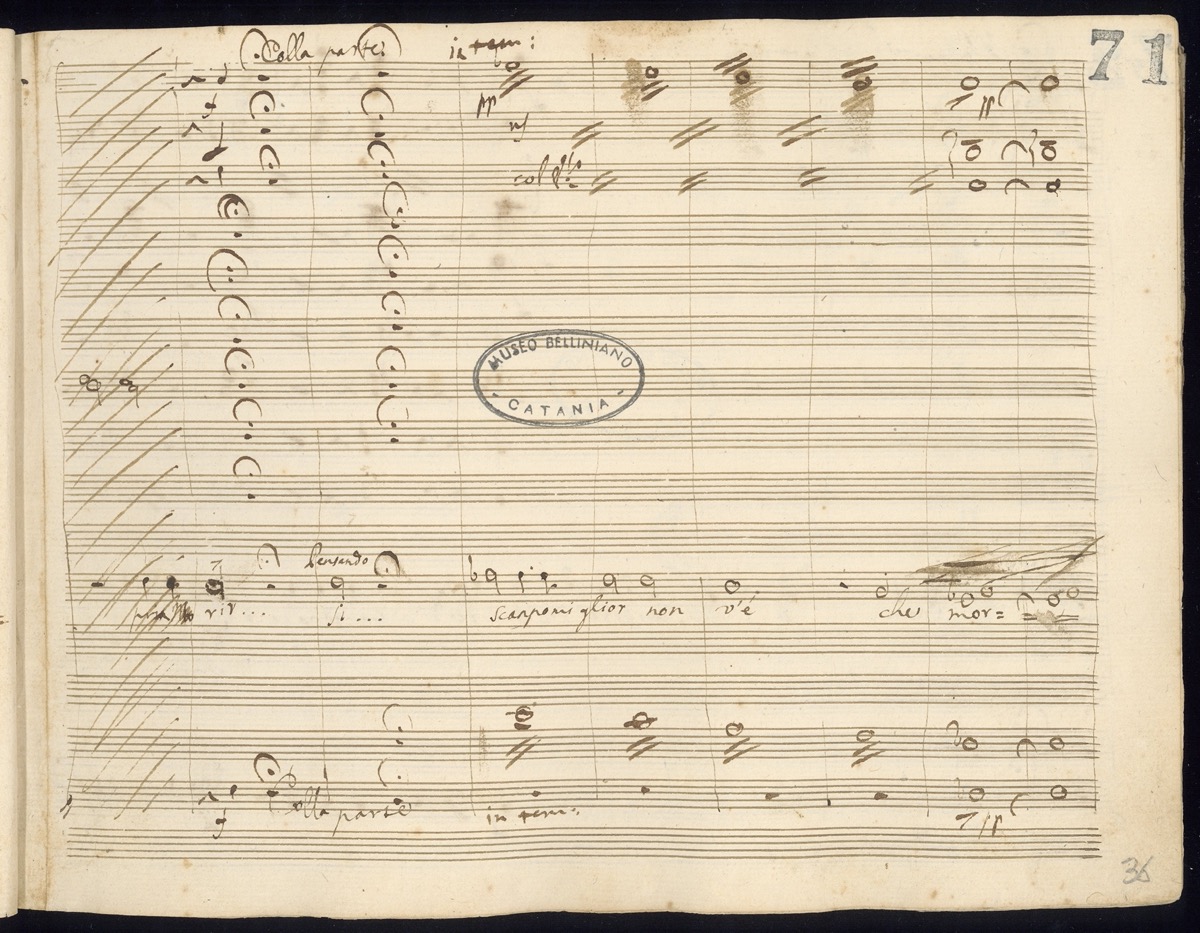 71
Colla parte
in tem:
pp
f
col
MUSEO BELLINIANO
CATANIA
Pensando
rir... si... scampo miglior non v'è che mor=
Colla parte
in tem:
f
pp
36